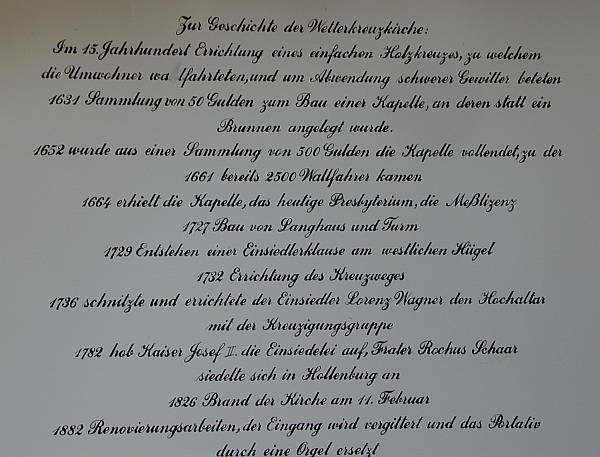 Zur Geschichte der Wetterkreuzkirche:
Im 15. Jahrhundert Errichtung eines einfachen Holzkreuzes, zu welchem
die Umwohner wa lfahrteten, und um Abwendung schwerer Gewitter beteten
1631 Sammlung von 50 Gulden zum Bau einer Kapelle, an deren statt ein
Brunnen angelegt wurde.
1652 wurde aus einer Sammlung von 500 Gulden die Kapelle vollendet, zu der
1661 bereits 2500 Wallfahrer kamen
1664 erhielt die Kapelle, das heutige Presbyterium, die Meßlizenz
1727 Bau von Langhaus und Turm
1729 Entstehen einer Einsiedlerklause am westlichen Hügel
1732 Errichtung des Kreuzweges
1736 schnitzte und errichtete der Einsiedler Lorenz Wagner den Hochaltar
mit der Kreuzigungsgruppe
1782 hob Kaiser Josef II. die Einsiedelei auf, Frater Rochus Schaar
siedelte sich in Hollenburg an
1826 Brand der Kirche am 11. Februar
1882 Renovierungsarbeiten, der Eingang wird vergittert und das Portativ
durch eine Orgel ersetzt